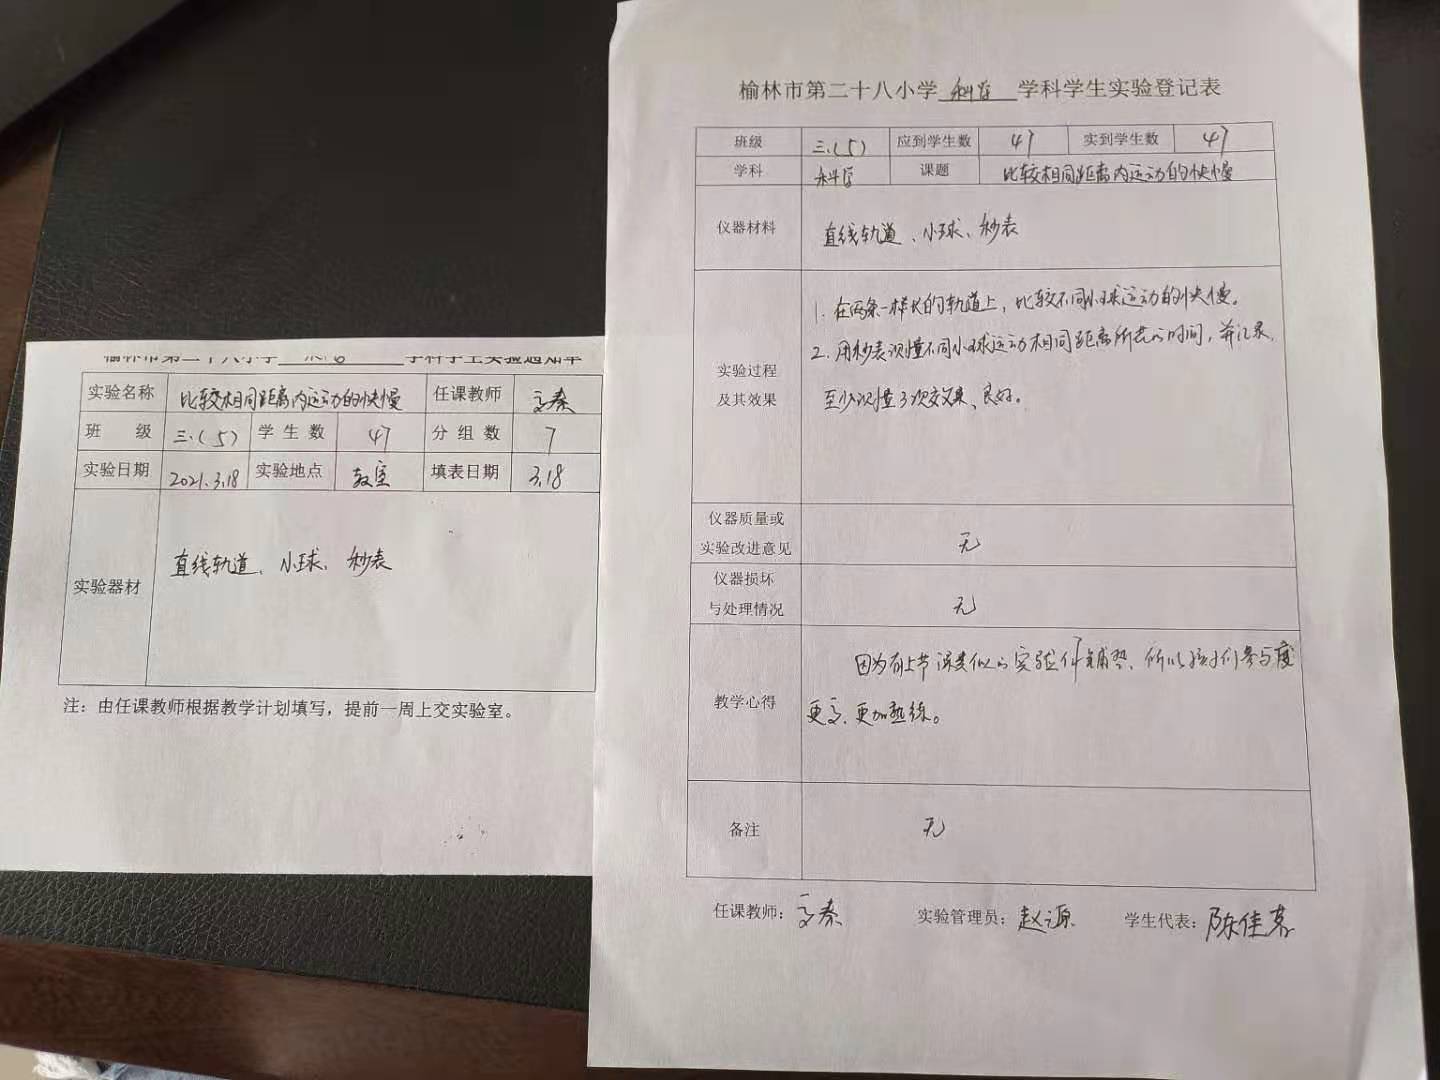 榆林市第二十八小学 科学 学科学生实验通知单
实验名称 比较相同距离内运动的快慢 任课教师
班 级 三.(5) 学生数 47 分组数 7
实验日期 2021.3.18 实验地点 教室 填表日期 3.18
实验器材 直线轨道、小球、秒表
注：由任课教师根据教学计划填写，提前一周上交实验室。
榆林市第二十八小学 科学 学科学生实验登记表
班级 三.(5) 应到学生数 47 实到学生数 47
学科 科学 课题 比较相同距离内运动的快慢
仪器材料 直线轨道、小球、秒表
实验过程
及其效果
1. 在两条一样长的轨道上，比较不同小球运动的快慢。
2. 用秒表测量不同小球运动相同距离所花的时间，并记录，
至少测量3次效果、良好。
仪器质量或
实验改进意见
无
仪器损坏
与处理情况
无
教学心得
因为有上节课类似的实验作铺垫、所以孩子们参与度
更高、更加熟练。
备注 无
任课教师： 实验管理员：赵源 学生代表：陈佳茗